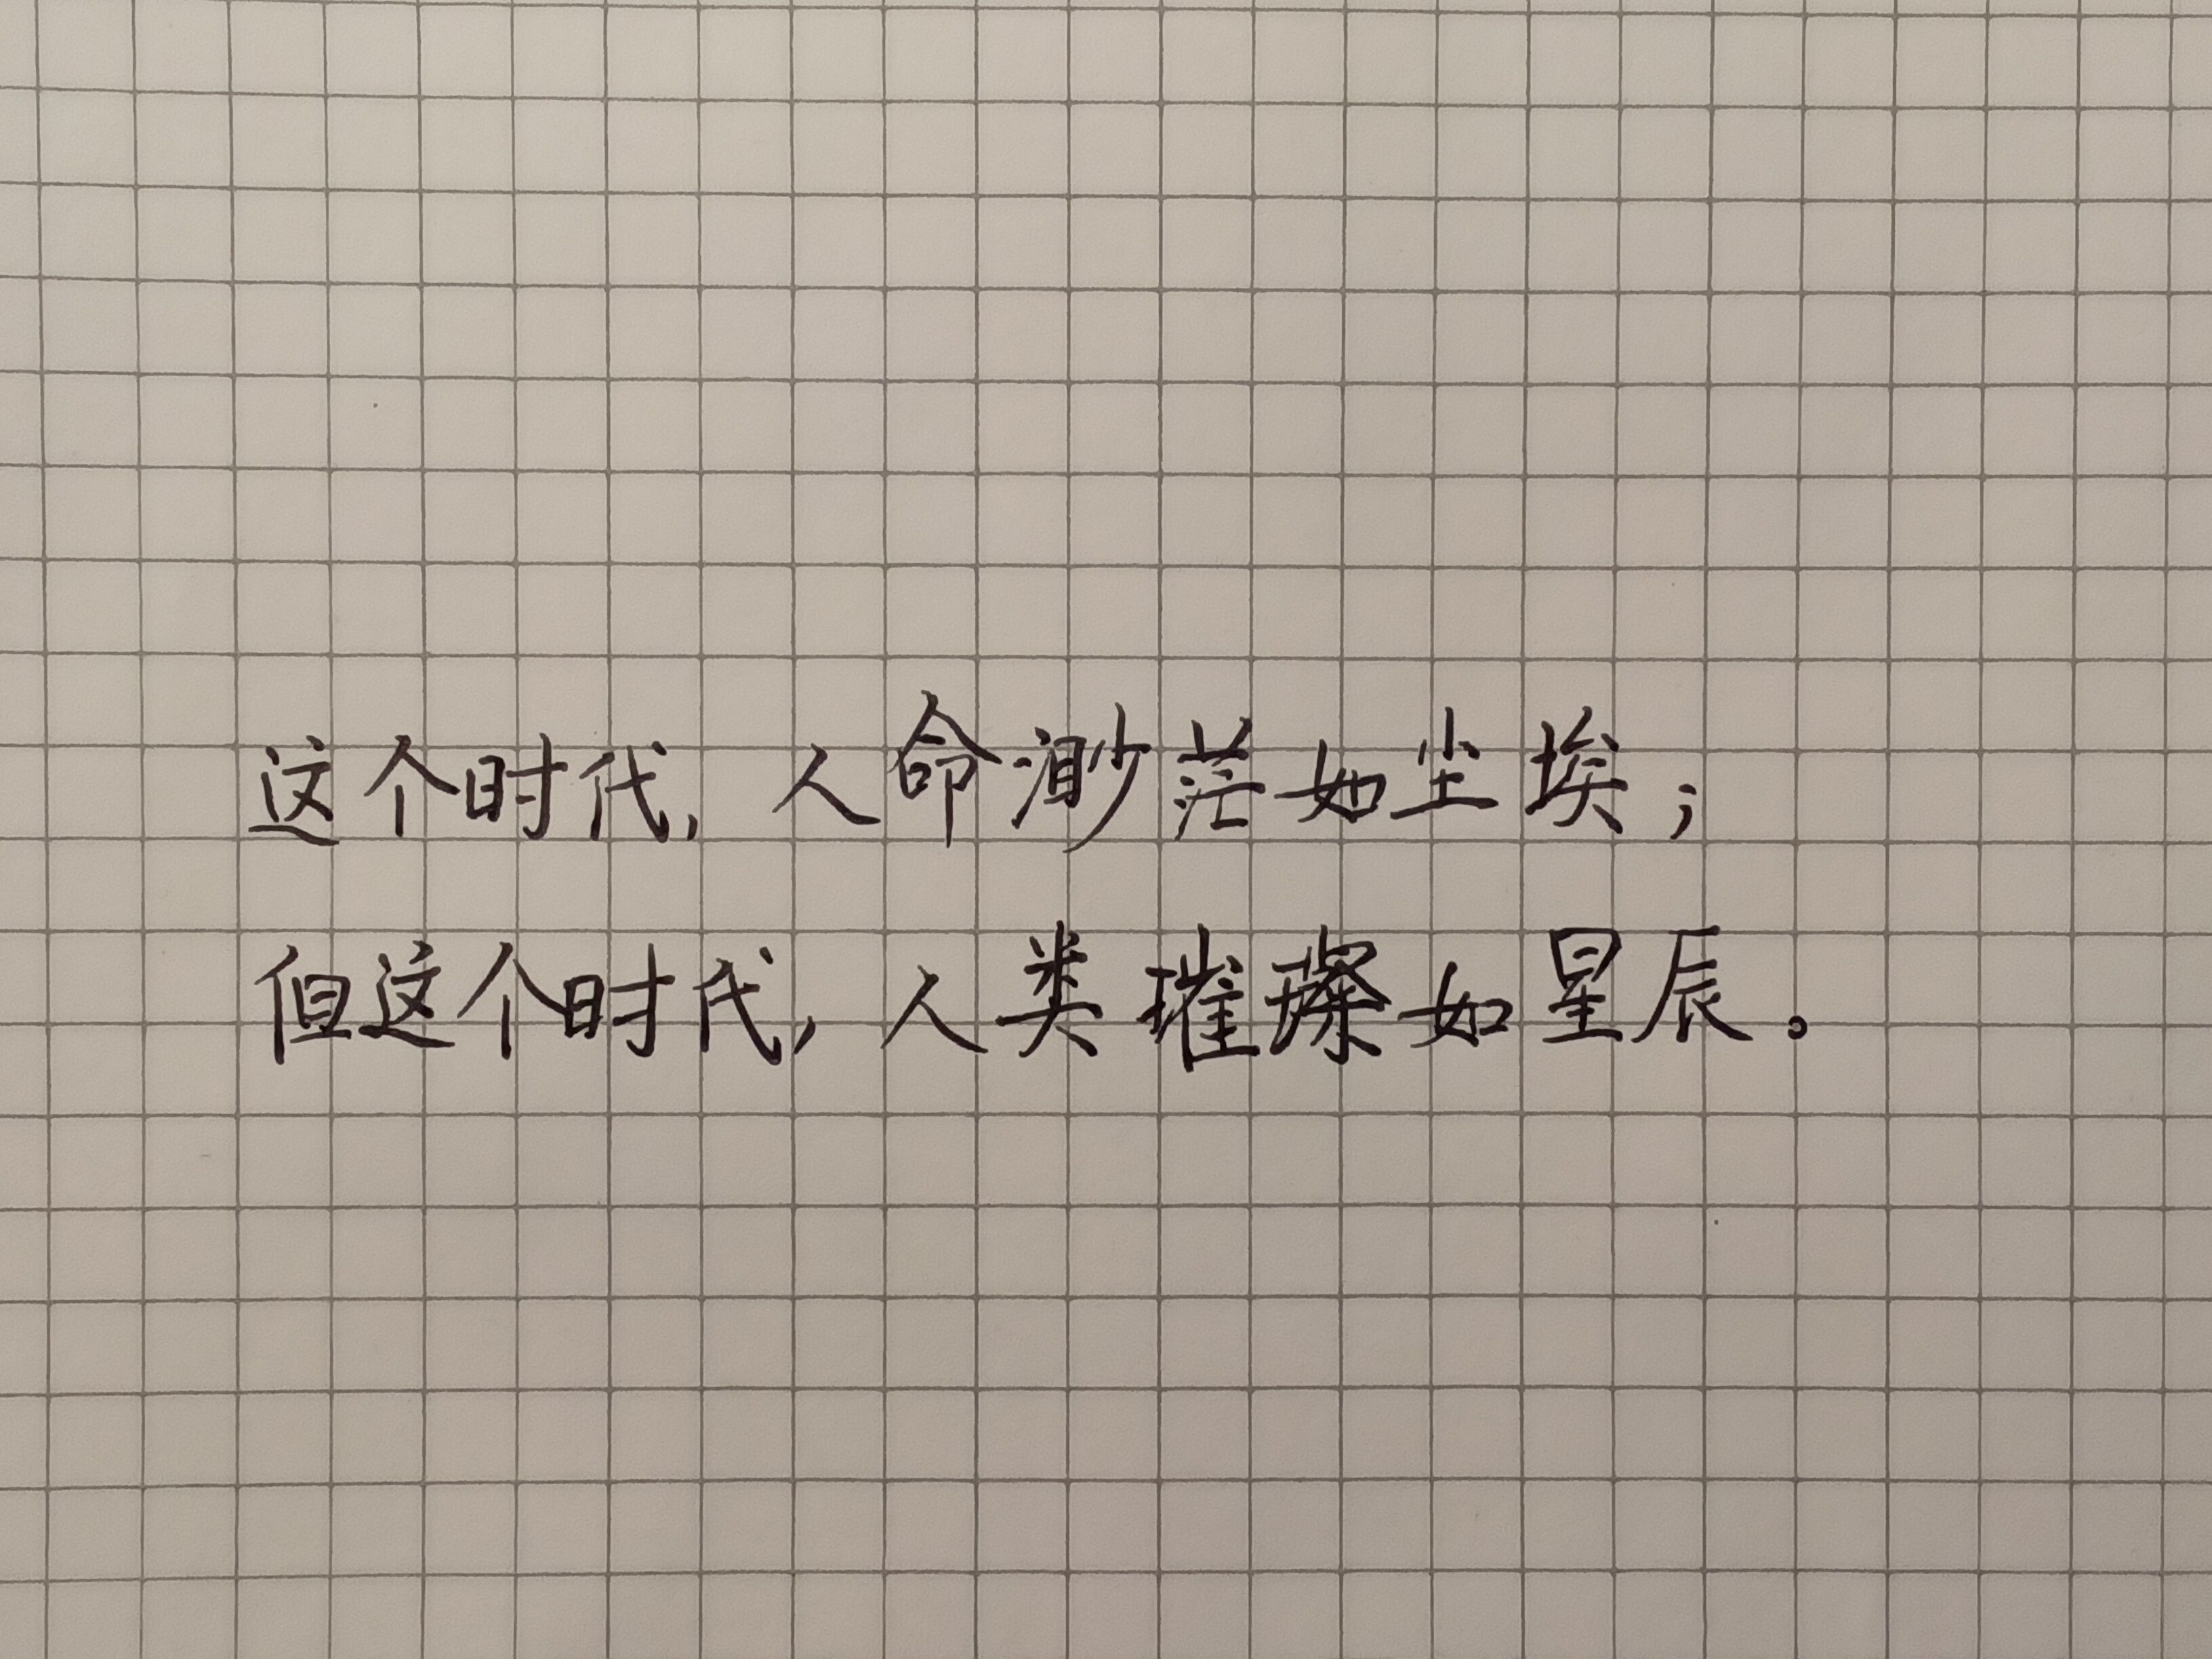 这个时代，人命渺茫如尘埃；
但这个时代，人类璀璨如星辰。